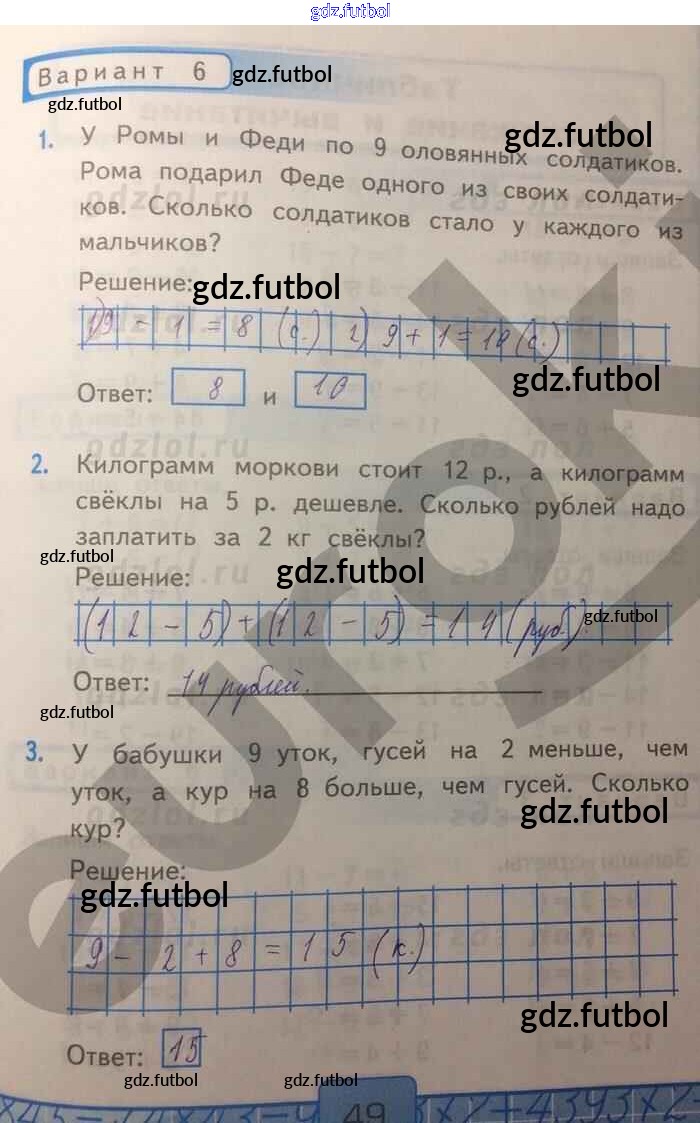 gdz.futbol
Вариант 6 gdz.futbol
gdz.futbol
gdz.futbol
1. У Ромы и Феди по 9 оловянных солдатиков.
Рома подарил Феде одного из своих солдати-
ков. Сколько солдатиков стало у каждого из
мальчиков?
Решение:
gdz.futbol
1) 9 - 1 = 8 (с.) 2) 9 + 1 = 10 (с.)
gdz.futbol
Ответ: 8 и 10
2. Килограмм моркови стоит 12 р., а килограмм
свёклы на 5 р. дешевле. Сколько рублей надо
заплатить за 2 кг свёклы?
gdz.futbol
Решение:
gdz.futbol
gdz.futbol
(12 - 5) + (12 - 5) = 14 (руб.)
Ответ: 14 рублей.
gdz.futbol
3. У бабушки 9 уток, гусей на 2 меньше, чем
уток, а кур на 8 больше, чем гусей. Сколько
кур?
gdz.futbol
Решение:
gdz.futbol
9 - 2 + 8 = 15 (к.)
gdz.futbol
Ответ: 15
gdz.futbol
gdz.futbol
49
euroki